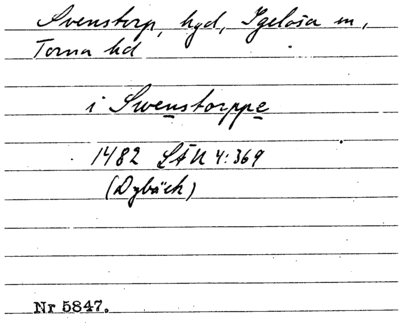 Svenstorp, hgd, Igelösa sn,
Torna hd
i Swenstorppe
1482 LÄU 4:369
(Dybäck)
Nr 5847.